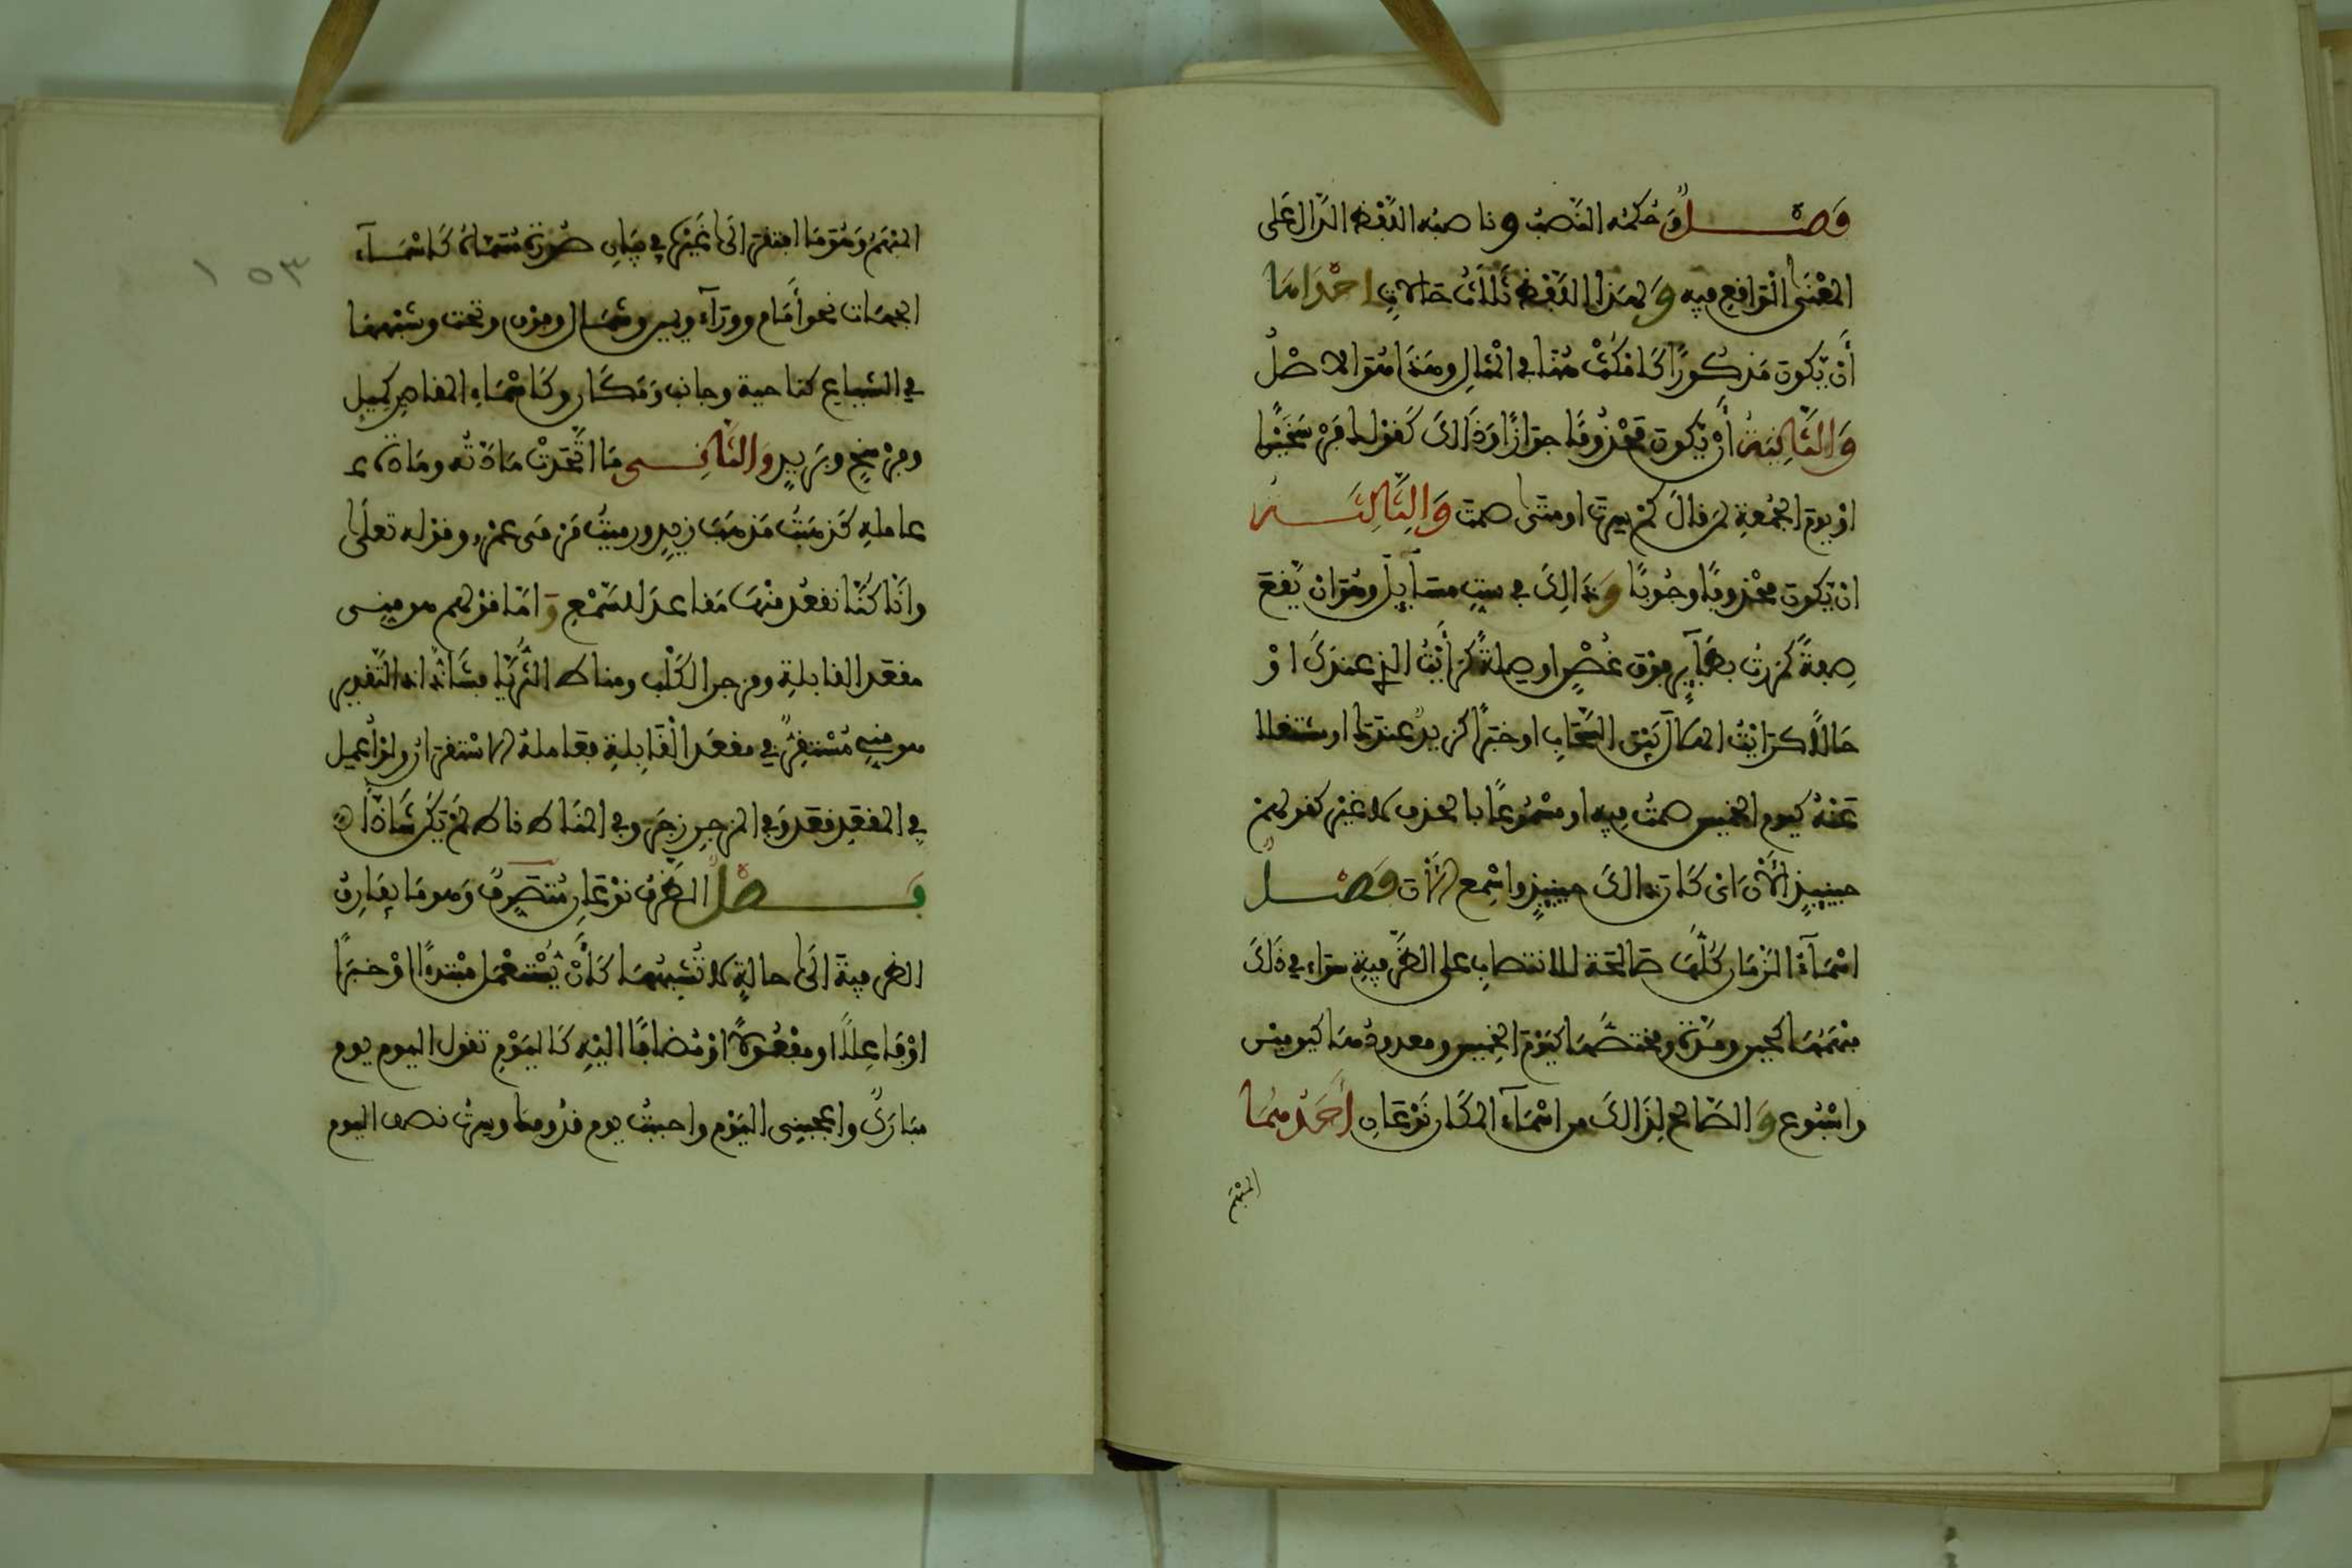 فصل وحكمه النصب وناصبه اللفظ الدال على
المعنى الواقع فيه ولهذا اللفظ ثلاث حالات احداها
أن يكون مذكورا كامكث هنا في المثال وهذا هو الاصل
والثانية أن يكون محذوفا جوازا وذالك كقولك فرسخين
او يوم الجمعة لمن قال كم سرت او متى صمت والثالثة
ان يكون محذوفا وجوبا وذالك في ست مسآيل وهو ان يقع
صفة كمررت بطآير فوق غصن او صلة كرأيت الذي عندك او
حالا كرايت الهلال بين السحاب او خبرا كزيد عندك او مشتغلا
عنه كيوم الخميس صمت فيه او مسموعا بالحذف لا غير كقولهم
حينيذ الأن اى كان ذالك حينيذ واسمع الأن فصل
اسمآء الزمان كلها صالحة للانتصاب على الظرفية سواء في ذلك
مبهمها كحين ومدة ومختصها كيوم الخميس ومعدودها كيومين
واسبوع والصالح لذالك من اسمآء المكان نوعان أحدهما
المبهم
المبهم وهو ما افتقر الى غيره في بيان صورة مسماه كاسمآء
الجهات نحو أمام وورآء ويمين وشمال وفوق وتحت وشبهها
في الشياع كناحية وجانب ومكان وكاسماء المقادر كميل
وفرسخ وبريد والثاني ما اتحدت مادته ومادة
عامله كذهبت مذهب زيد ورميت مرمى عمرو وقوله تعلى
وانا كنا نقعد منها مقاعد للسمع واما قولهم هو مني
مقعد القابلة ومزجر الكلب ومناط الثريا فشاذ اذ التقدير
هو مني مستقر في مقعد القابلة فعامله الاستقرار ولو أعمل
في المقعد قعد وفي المزجر زجر وفي المناط ناط لم يكن شاذا
فصل الظرف نوعان متصرف وهو ما يفارق
الظرفية الى حالة لا تشبهها كأن يستعمل مبتدءا او خبرا
او فاعلا او مفعولا او مضافا اليه كاليوم تقول اليوم يوم
مبارك واعجبني اليوم واحببت يوم قدومك وسرت نصف اليوم
١٥٣